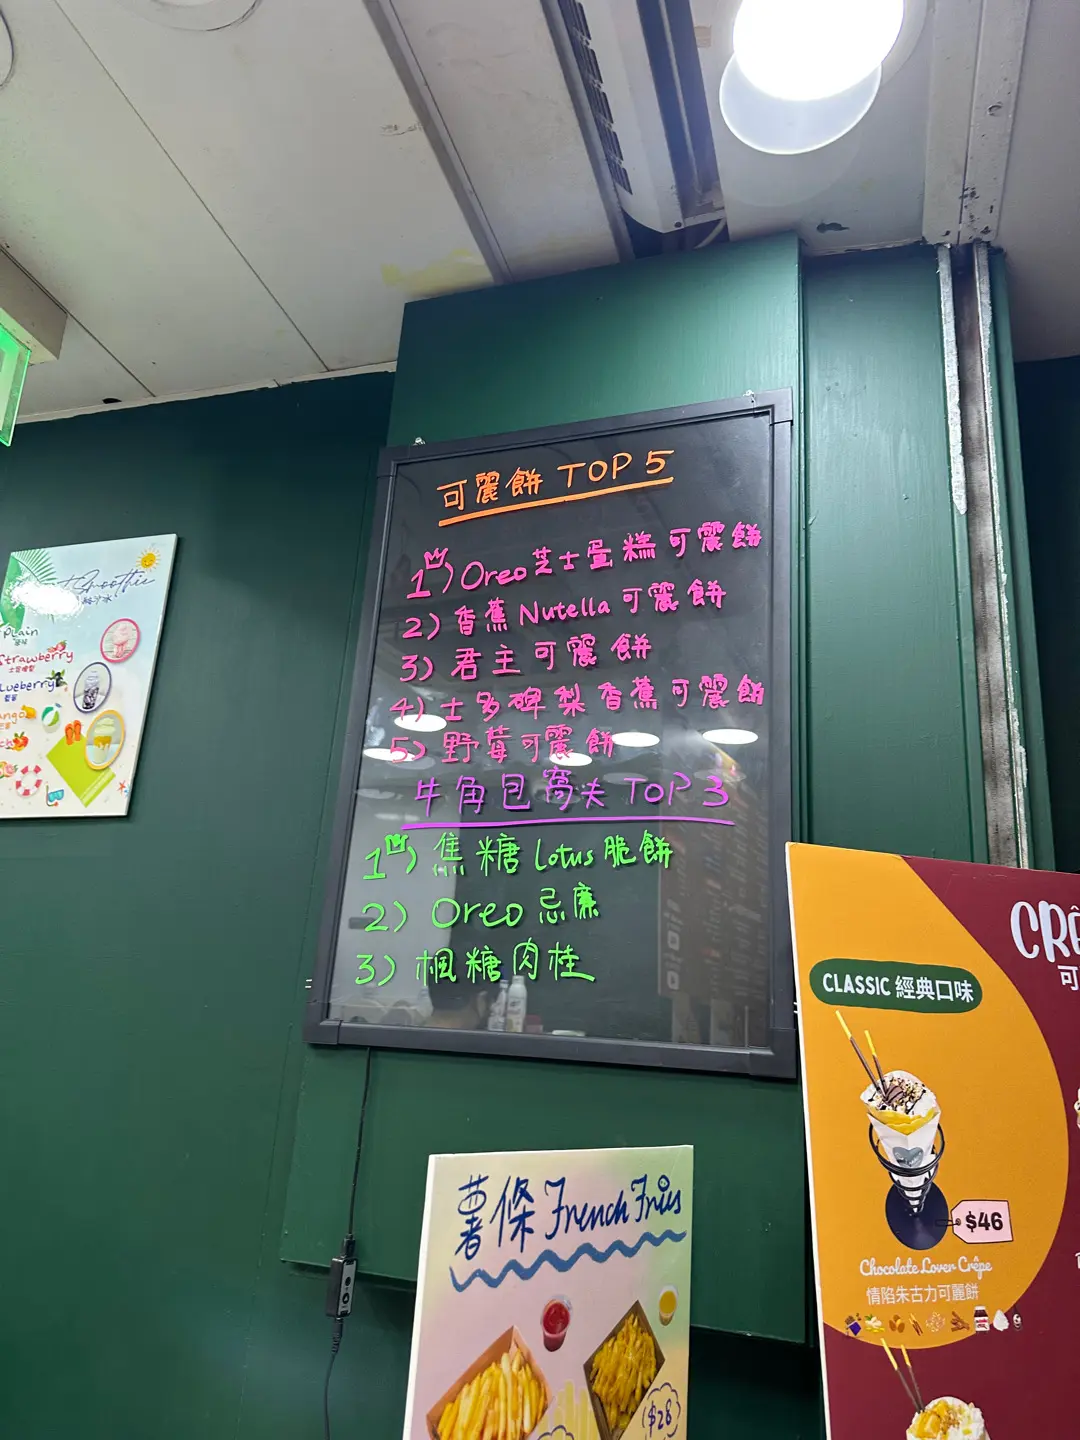 可麗餅 TOP 5
1) Oreo芝士蛋糕可麗餅
2) 香蕉 Nutella 可麗餅
3) 君主可麗餅
4) 士多啤梨香蕉可麗餅
5) 野莓可麗餅
牛角包窩夫 TOP 3
1) 焦糖 Lotus 脆餅
2) Oreo 忌廉
3) 楓糖肉桂
Smoothie
Plain
原味
Strawberry
士多啤梨
藍莓
薯條 French Fries
$28
CLASSIC 經典口味
$46
Chocolate Lover Crêpe
情陷朱古力可麗餅